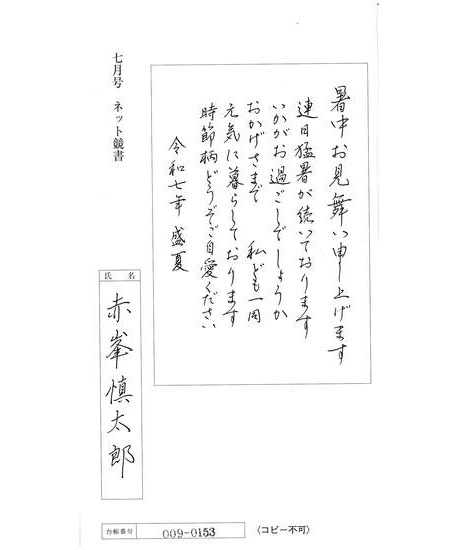 暑中お見舞い申し上げます
連日猛暑が続いております
いかがお過ごしでしょうか
おかげさまで 私ども一同
元気に暮らしております
時節柄どうぞご自愛ください
令和七年 盛夏
七月号 ネット競書
氏名
赤峯慎太郎
台帳番号 009-0153 〈コピー不可〉